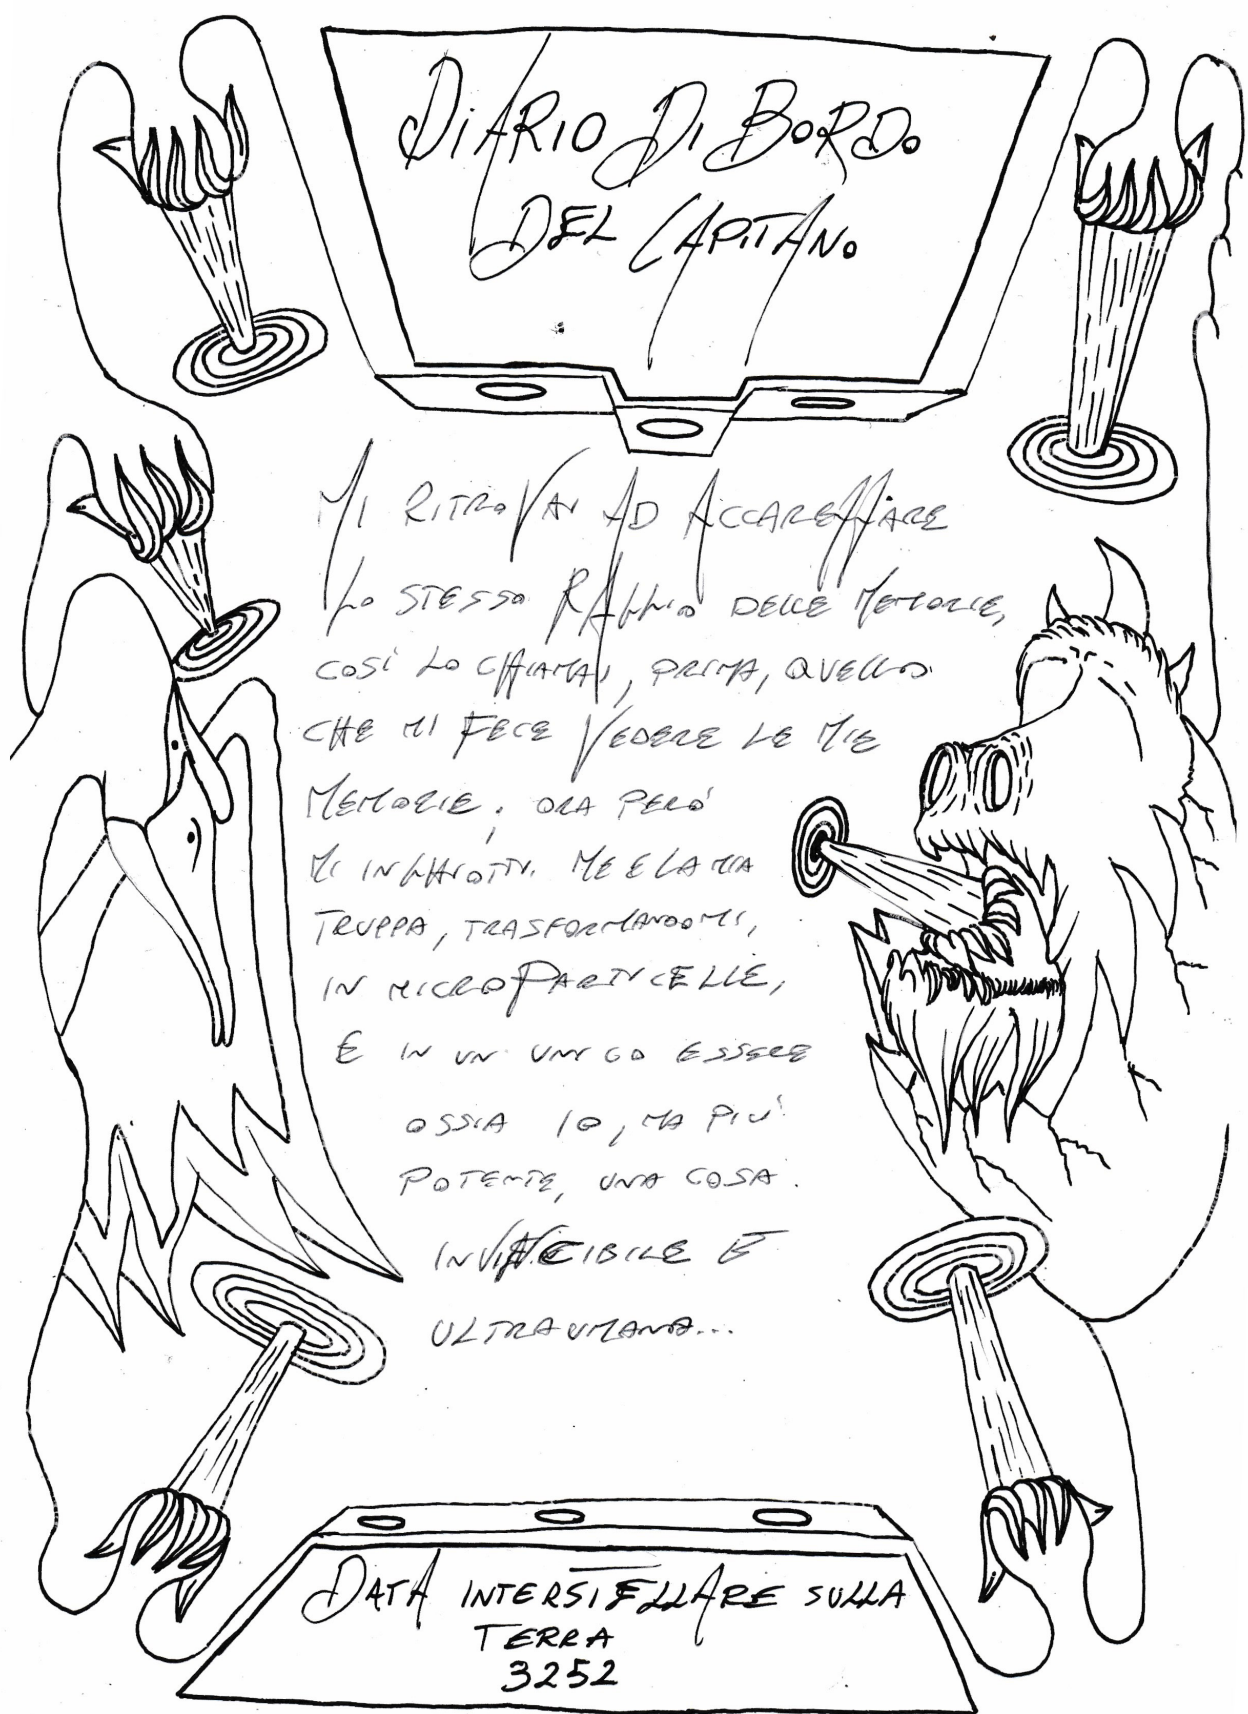 DIARIO DI BORDO
DEL CAPITANO
MI RITROVAI AD ACCAREZZARE
LO STESSO RAGGIO DELLE MEMORIE,
COSÌ LO CHIAMAI, PRIMA, QUELLO
CHE MI FECE VEDERE LE MIE
MEMORIE; ORA PERÒ
MI INGHIOTTÌ. ME E LA MIA
TRUPPA, TRASFORMANDOMI,
IN MICROPARTICELLE,
E IN UN UNICO ESSERE
OSSIA IO, MA PIÙ
POTENTE, UNA COSA
INVINCIBILE E
ULTRAUMANA...
DATA INTERSTELLARE SULLA
TERRA
3252